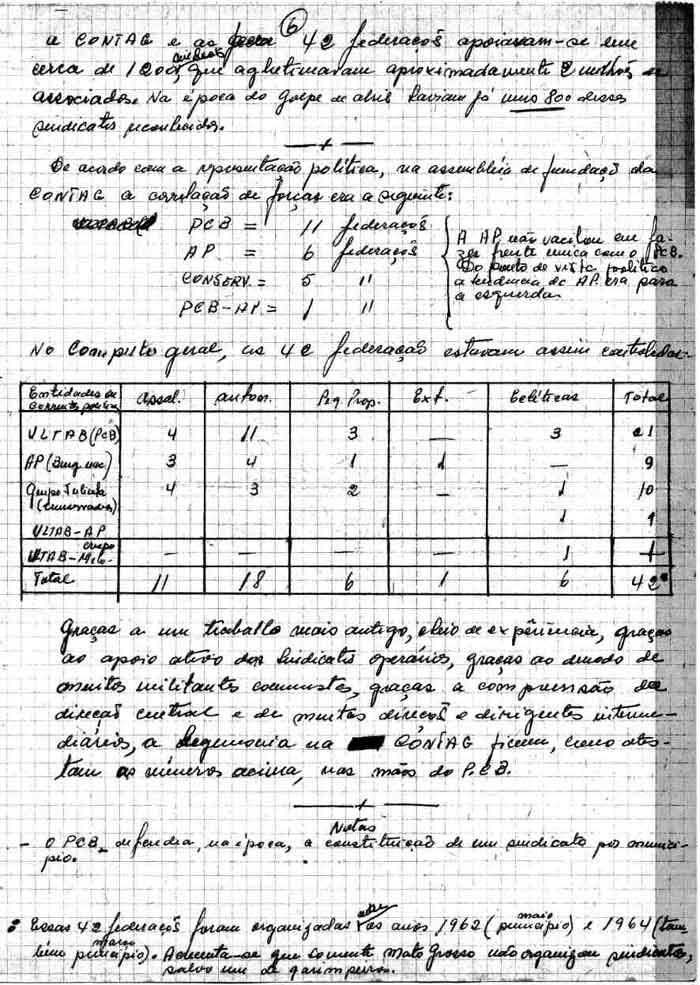 6
a CONTAG e as 42 federações apoiavam-se em
cerca de 1200 sindicatos, que aglutinavam aproximadamente 2 milhões de
associados. Na época do golpe de abril haviam já uns 800 desses
sindicatos reconhecidos.
De acordo com a representação política, na assembléia de fundação da
CONTAG a correlação de forças era a seguinte:
PCB = 11 federações
AP = 6 federações
CONSERV. = 5 "
PCB-AP = 1 "
A AP não vacilou em fa-
zer frente unica com o PCB.
Do ponto de vista político
a tendência de AP era para
a esquerda.
No Computo geral, as 42 federação estavam assim controladas:
Entidades ou Corrente política | Assal. | autôn. | Peq. Prop. | Ext. | Ecléticas | Total
ULTAB (PCB) | 4 | 11 | 3 | — | 3 | 21
AP (Burg. nac) | 3 | 4 | 1 | 1 | — | 9
Grupo (conservador) | 4 | 3 | 2 | — | 1 | 10
ULTAB-AP | 1 | 1
ULTAB-grupo Melo- | — | — | — | — | 1 | 1
Total | 11 | 18 | 6 | 1 | 6 | 42*
Graças a um trabalho mais antigo, cheio de experiência, graças
ao apoio ativo dos sindicatos operários, graças ao denodo de
muitos militantes comunistas, graças a compreensão da
direção central e de muitas direções e dirigentes interme-
diários, a hegemonia na CONTAG ficou, como ates-
tam os números acima, nas mãos do P.C.B.
Notas
- O PCB defendia, na época, a constituição de um sindicato por municí-
pio.
* Essas 42 federações foram organizadas entre os anos 1962 (maio princípio) e 1964 (tam-
bém março princípio). Acrescenta-se que somente Mato Grosso não organizou sindicatos,
salvo um de garimpeiros.